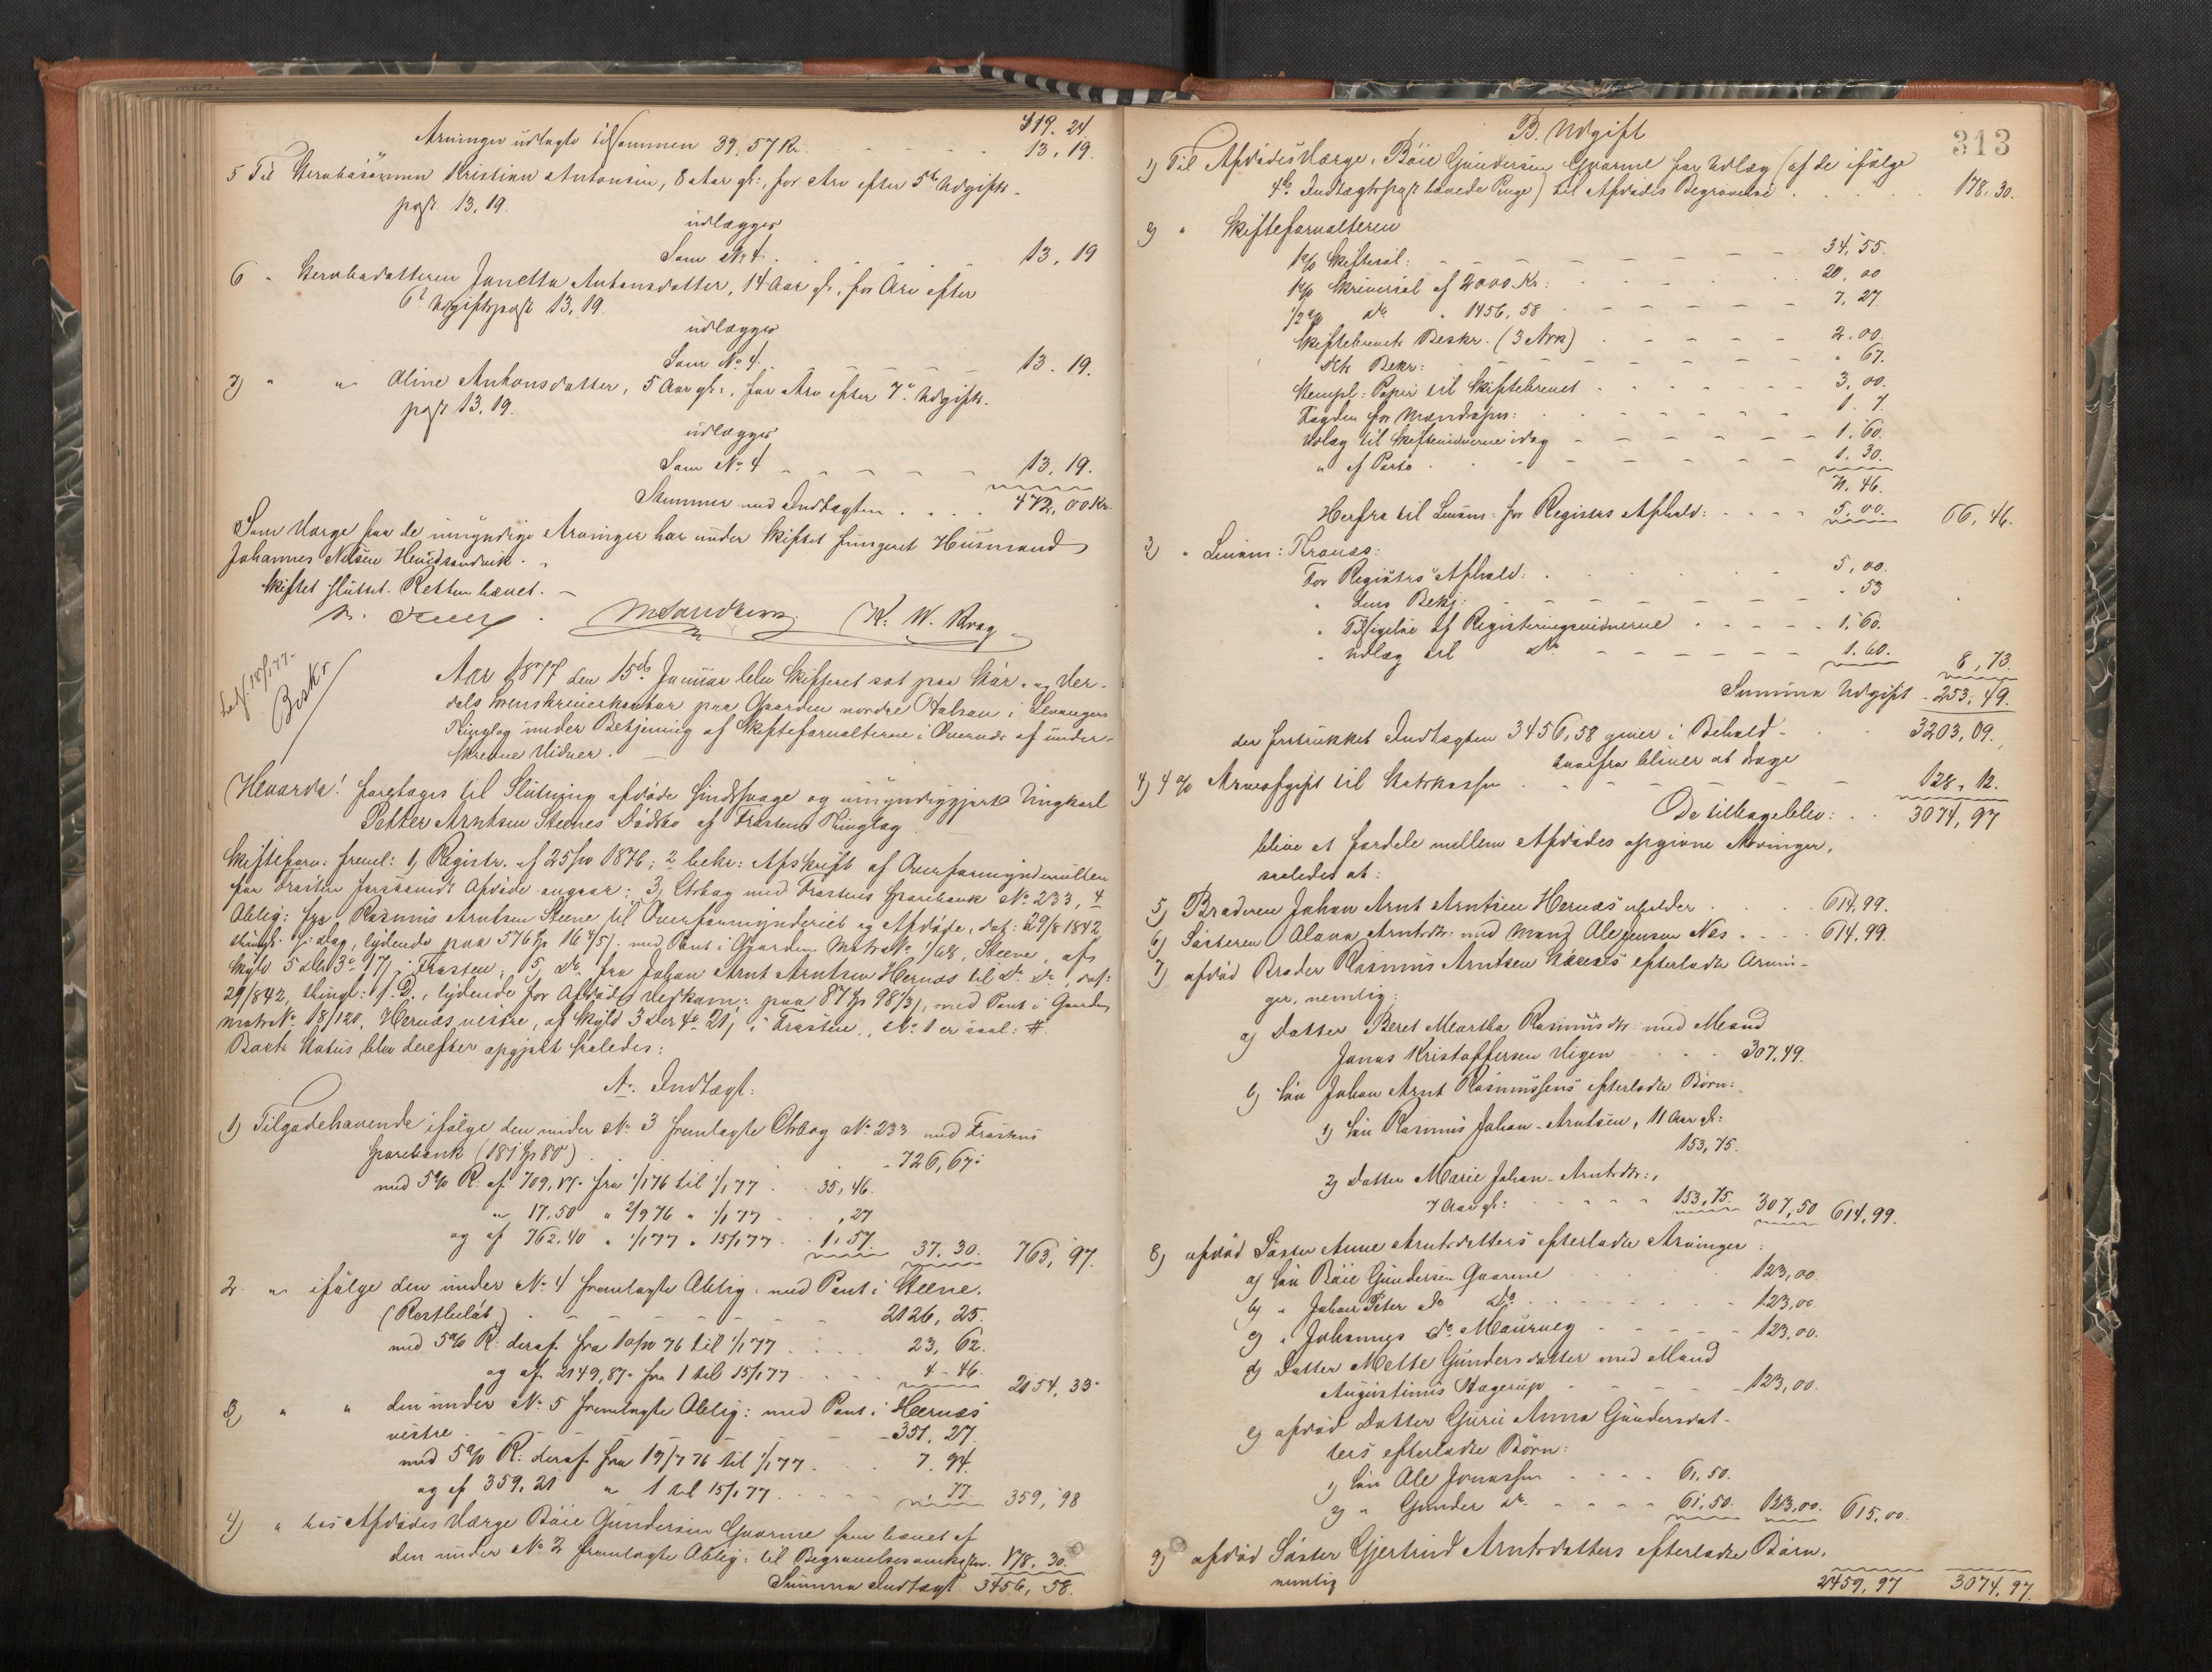 419. 24
Arvinger udlagte tilsammen 39. 57 Kr. 13, 19.
5 Til Stervbosønnen Kristian Antonsen, 8 Aar gl:, for Arv efter 5te Udgifts-
post 13. 19.
udlægges
Som No 4. 13, 19
6 " Stervbodatteren Janetta Antonsdatter, 14 Aar gl., for Arv efter
6te Udgiftspost 13. 19.
udlægges
Som No 4. 13. 19.
7) " " Oline Antonsdatter, 5 Aar gl:, for Arv efter 7de Udgifts-
post 13. 19.
udlægges
Som No 4 13. 19.
Stemmer med Indtægten . . . . 472, 00 Kr.
Som Værge for de umyndige Arvinger har under Skiftet fungeret Husmand
Johannes Nilsen
Skiftet sluttet. Retten hævet. –
K. W. Krag
18/1 77.
Beskr
Aar 1877 den 15de Januar blev Skifteret sat paa Stør- og Vær-
dals Sorenskriverkontor paa Gaarden nordre Halsan i Levangers
Thinglag under Betjening af Skifteforvalteren i Overvær af under-
skrevne Vidner. –
Hvorda! foretoges til Slutning afdøde sindssvage og umyndiggjorte Ungkarl
Petter Arntsen Steenes Dødsbo af Frostens Thinglag
Skifteforv: freml: 1) Registr. af 25/10 1876; 2 bekr: Afskrift af Overformynderrullen
for Frosten forsaavidt Afdøde angaar; 3, Ctrbog med Frostens Sparebank No 233, 4
Oblig: fra Rasmus Arntsen Steene til Overformynderiet og Afdøde, dat: 29/8 1842
thingl: s. Dag, lydende paa 576 Sp 16 4/5 /. med Pant i Gaarden Matr No 1/68, Steene, af
Skyld 5 Dlr 3 o 17 /. i Frosten; 5, do fra Johan Arnt Arntsen Hernæs til do do, dat:
29/8 42, thingl: s. D., lydende for Afdødes Vedkom: paa 87 Sp 98 1/3 /, med Pant i Gaarden
Matr No 18/120, Hernæs vestre, af Skyld 3 Dlr 4 o 21 /, i Frosten, No 1 er saal: #.
Boets Status blev derefter opgjort saaledes:
A. Indtægt:
1) Tilgodehavende ifølge den under No 3 fremlagte Ctrbog No 233 med Frostens
Sparebank (181 Sp 80) 726, 67.
med 5% R. af 709, 17. fra 1/1 76 til 1/1 77 . . 35, 46.
" 17. 50 " 2/9 76 " 1/1 77 . . , 27
og af 762. 40 " 1/1 77 " 15/1 77 . . 1, 57 37. 30. 763, 97.
2. " ifølge den under No 4 fremlagte Oblig: med Pant i Steene.
(Restbeløb) 2126, 25.
med 5% R: deraf fra 10/10 76 til 1/1 77 . . . . 23, 62.
og af 2149, 87. fra 1 til 15/1 77 . . . . 4 - 46. 2154, 33.
3) " " den under No 5 fremlagte Oblig: med Pant i Hernæs
vestre . – – – 351. 27.
med 5% R: deraf fra 19/7 76 til 1/1 77 . . . 7. 94.
og af 359, 21 " 1 til 15/1 77 . . . . " 77. 359, 98
4) " hos Afdødes Værge Bøie Gundersen Gvarme som hævet af
den under No 2 fremlagte Oblig: til Begravelsesomkostn. 178. 30.
Summa Indtægt 3456, 58.
313
B. Udgift
1) Til Afdødes Værge, Bøie Gundersen Gvarme for Udlæg (af de ifølge
4de Indtægtspost hævede Penge) til Afdødes Begravelse . . . . 178. 30.
2) " Skifteforvalteren
1% Skiftesal: 34, 55.
1% Skriversal af 2000 Kr: 20, 00
1/2 % do " 1456, 58 7, 27.
Skiftebrevets Beskr. (3 Ark) 2. 00.
dets Bekr: " 67.
Stempl: Papir til Skiftebrevet 3, 00.
1. 7.
Udlæg til Skiftevidnerne idag 1. 60.
" af Porto 1. 30.
71. 46.
Herfra til Lensm: for Registrs Afhold: . . . . 5, 00. 66, 46.
3) " Lensm: Krauss:
For Registrs Afhold: 5, 00.
" dens Bekj: " 53
" Tilsigelse af Registreringsvidnerne . . . . . 1, 60.
" Udlæg til do 1. 60. 8, 73.
Summa Udgift . 253, 49.
der fratrukket Indtægten 3456, 58 giver i Behold . 3203, 09.
hvorfra bliver at drage
4) 4% Arveafgift til Statskassen 128, 12.
De tilbageblev: . . 3074, 97
blive at fordele mellem Afdødes opgivne Arvinger,
saaledes at:
5) Broderen Johan Arnt Arntsen Hernæs erholder . . . . 614, 99.
6) Søsteren Olava Arntsdtr: med Mand Ole Jensen Næs . . . . 614, 99.
7) afdød Broder Rasmus Arntsen Steenes efterladte Arvin-
ger, nemlig:
a) Datter Beret Martha Rasmusdtr: med Mand
Jonas Kristoffersen Vigen . . . . 307, 49.
b) Søn Johan Arnt Rasmussens efterladte Børn:
1) Søn Rasmus Johan-Arntsen, 11 Aar gl:
153, 75.
2) Datter Marie Johan-Arntsdtr:,
7 Aar gl: . . . . 153, 75. 307, 50 614, 99.
8) afdød Søster Anne Arntsdatters efterladte Arvinger:
a) Søn Bøie Gundersen Gvarme . . . . 123, 00.
b) " Johan Peter do do . . . . 123, 00.
c) " Johannes do Maurveg . . . . 123, 00.
d) Datter Mette Gundersdatter med Mand
Augustinus Hagerup . . . . 123, 00.
e) afdød Datter Guru Anna Gundersdat-
ters efterladte Børn:
1) Søn Ole Jonassen . . . . 61. 50.
2) " Gunder do . . . . 61, 50. 123, 00. 615, 00.
9) afdød Søster Gjertrud Arntsdatters efterladte Børn,
nemlig 2459, 97 3074, 97.